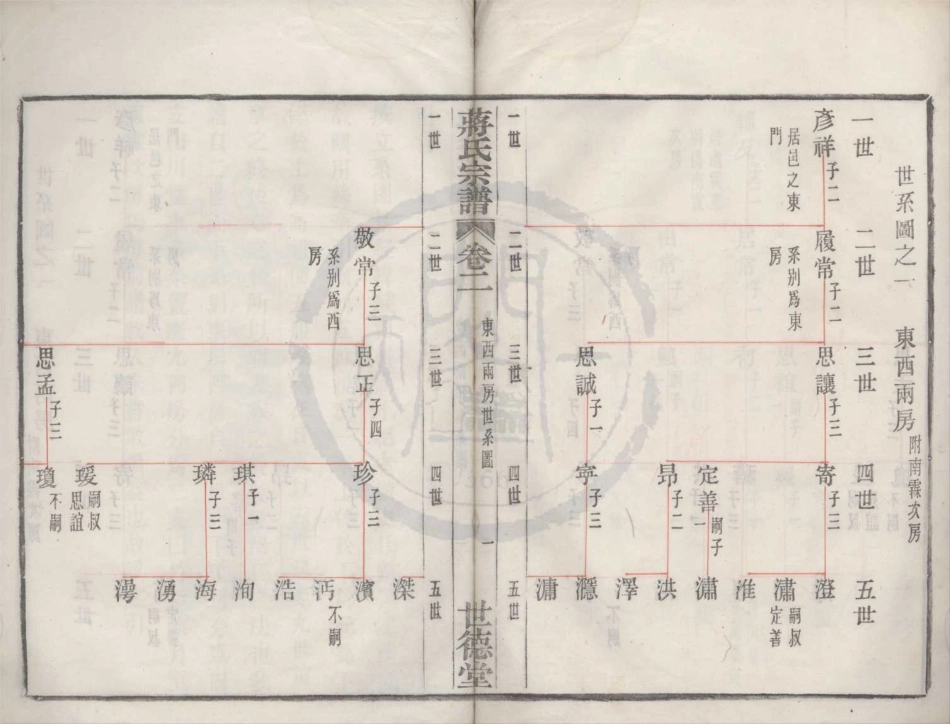 世系圖之一 東西兩房 附南霖次房
一世 二世 三世 四世 五世
彥祥 子二
居邑之東
門
履常 子二
系別爲東
房
思讓 子三
寄 子三
澄
瀟 嗣叔
定善
淮
定善 嗣子
一
瀟
昂 子二
洪
澤
思誠 子一
寜 子三
濦
滽
一世 二世 三世 四世 五世
蔣氏宗譜 卷二 東西兩房世系圖 一 世德堂
一世 二世 三世 四世 五世
敬常 子三
系別爲西
房
思正 子四
珍 子三
滐
濱
沔 不嗣
浩
琪 子一
洵
璘 子三
海
湧
瑗 嗣叔
思誼
思孟 子三
瓊 不嗣